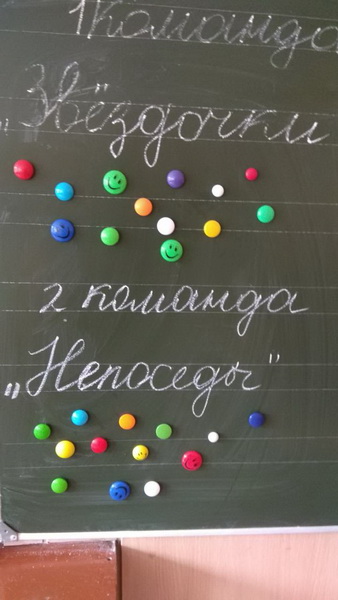 1 команда
„Звёздочки
2 команда
„Непоседы"